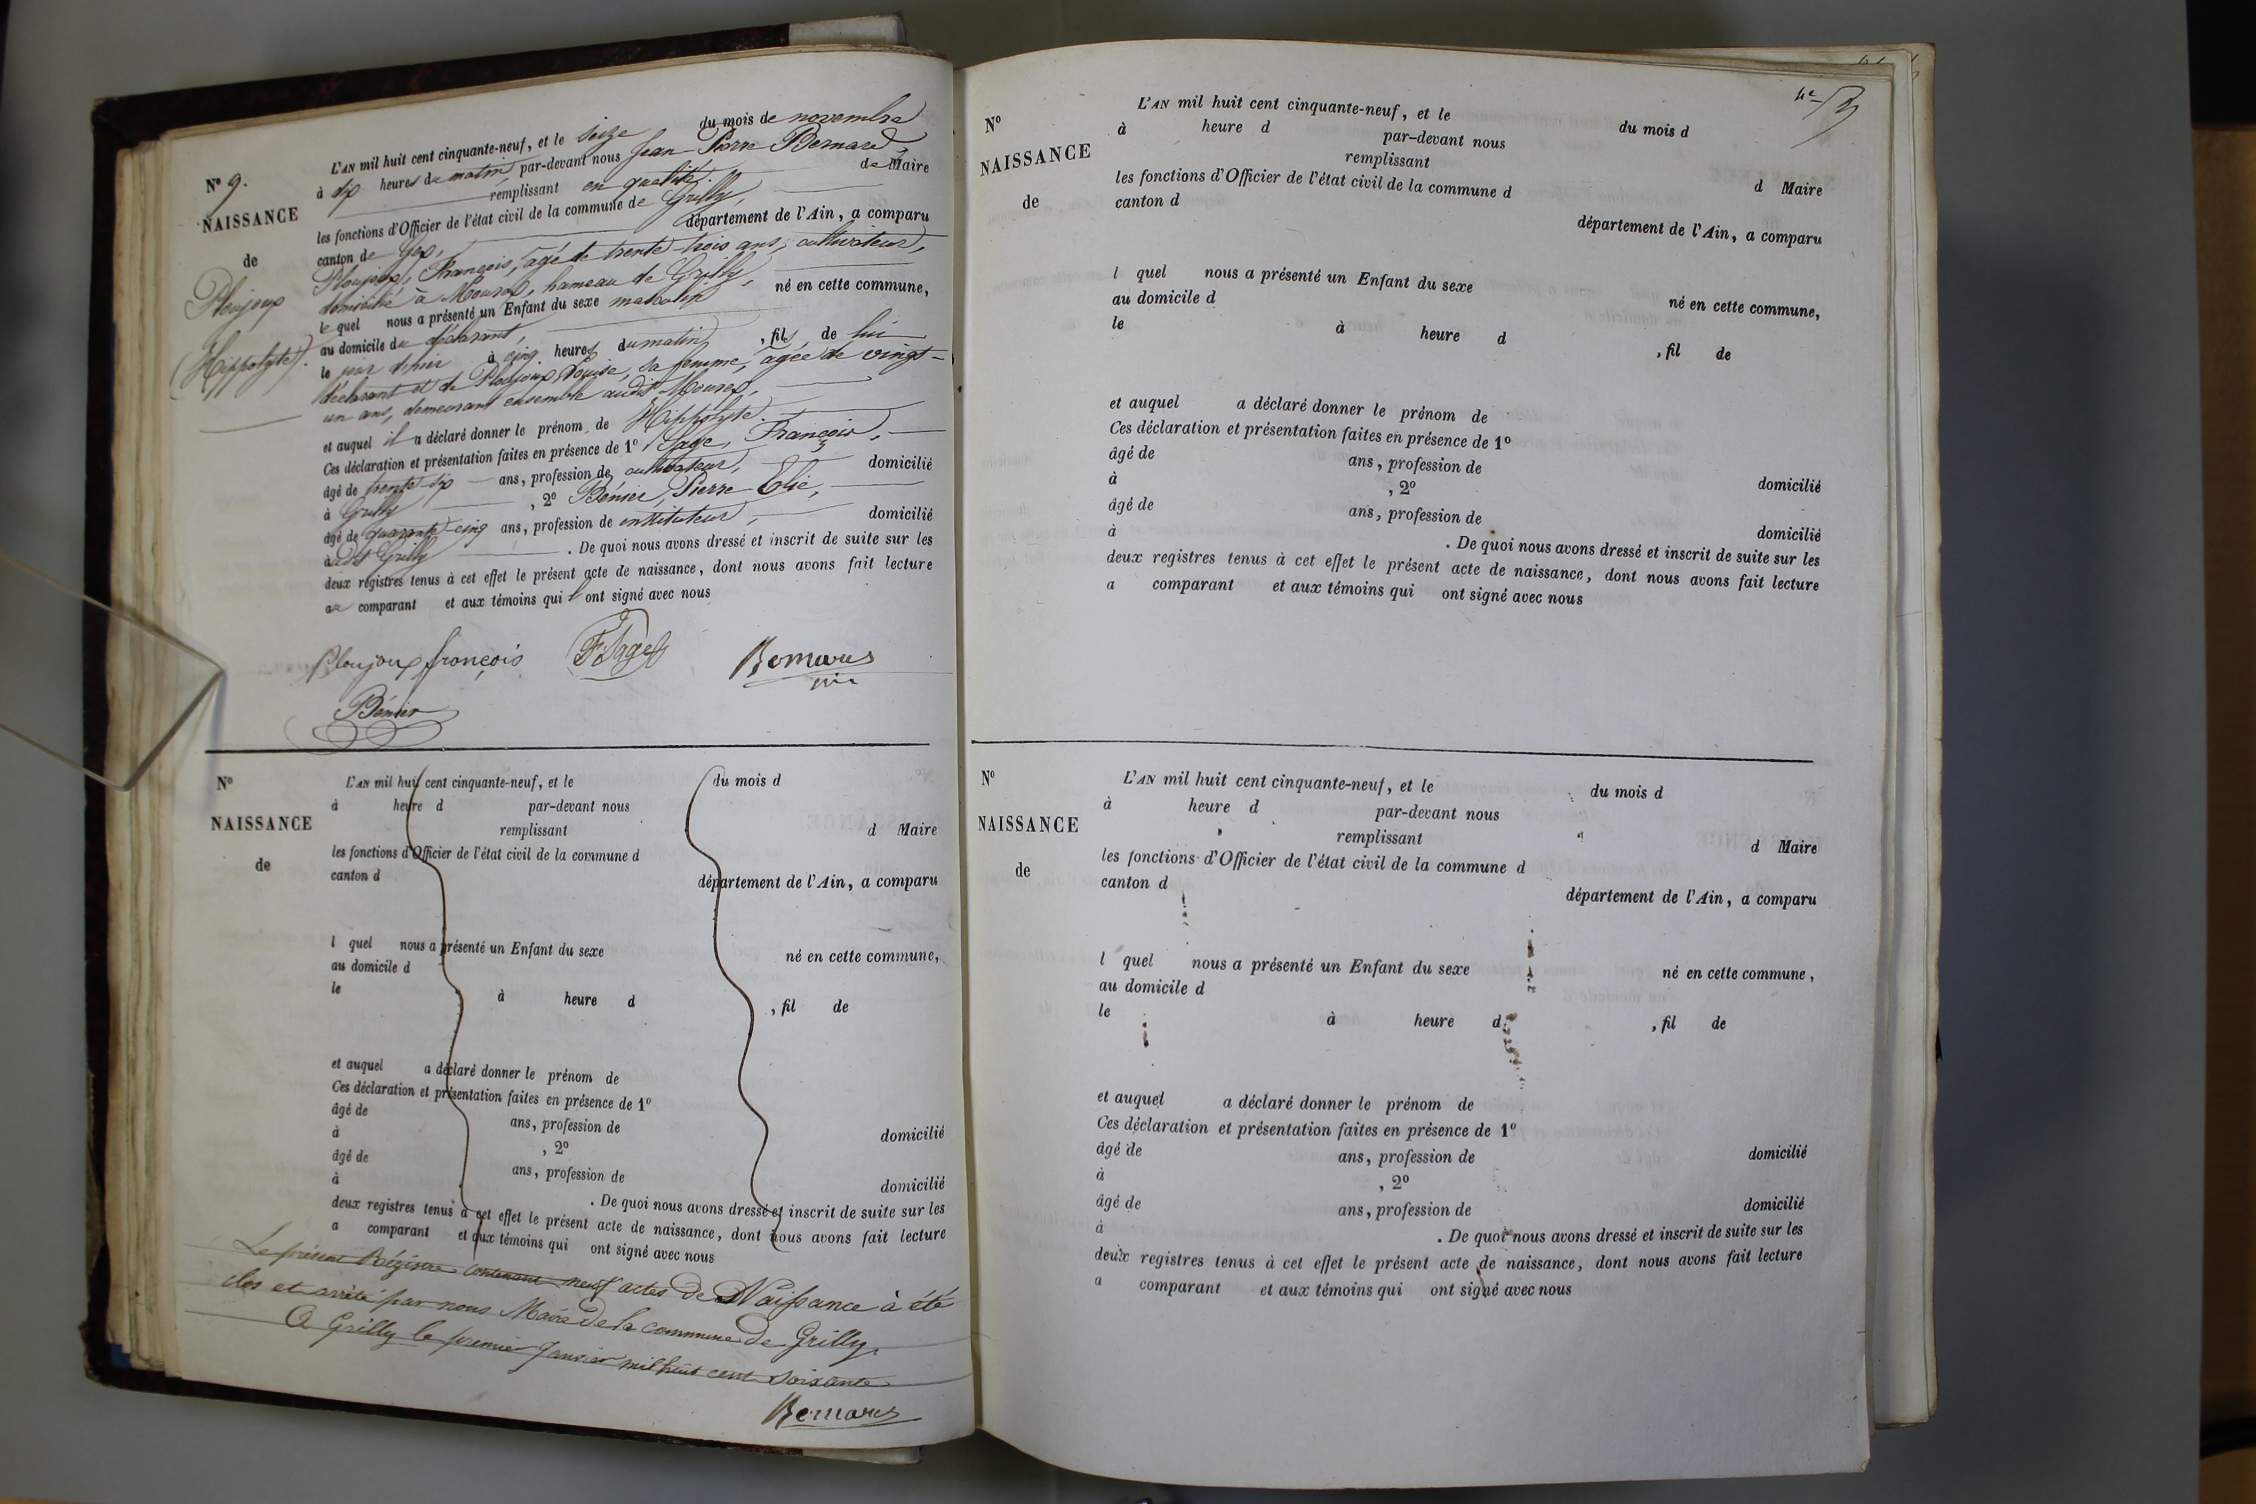 N° 9.
NAISSANCE
de
Ploujoux
(Hippolyte).
L'AN mil huit cent cinquante-neuf, et le seize du mois de novembre
à dix heures du matin par-devant nous Jean Pierre Bernard,
remplissant en qualité de Maire
les fonctions d'Officier de l'état civil de la commune de Grilly,
canton de Gex, département de l'Ain, a comparu
Ploujoux, François, âgé de trente trois ans, cultivateur,
domicilié à Mourex, hameau de Grilly,
le quel nous a présenté un Enfant du sexe masculin né en cette commune,
au domicile du déclarant,
le jour d'hier à cinq heures du matin, fils de lui
déclarant et de Ploujoux Louise, sa femme, âgée de vingt-
un ans, demeurant ensemble audit Mourex,
et auquel il a déclaré donner le prénom de Hippolyte.
Ces déclaration et présentation faites en présence de 1° Sage, François,
âgé de trente six ans, profession de cultivateur, domicilié
à Grilly, 2° Bénier, Pierre Elie,
âgé de quarante-cinq ans, profession de instituteur, domicilié
à dit Grilly. De quoi nous avons dressé et inscrit de suite sur les
deux registres tenus à cet effet le présent acte de naissance, dont nous avons fait lecture
au comparant et aux témoins qui ont signé avec nous
Ploujoux françois F. Sage Bernard
Bénier
N°
NAISSANCE
de
L'AN mil huit cent cinquante-neuf, et le du mois d
à heure d par-devant nous
remplissant d Maire
les fonctions d'Officier de l'état civil de la commune d
canton d département de l'Ain, a comparu
l quel nous a présenté un Enfant du sexe né en cette commune,
au domicile d
le à heure d , fil de
et auquel a déclaré donner le prénom de
Ces déclaration et présentation faites en présence de 1°
âgé de ans, profession de domicilié
à , 2°
âgé de ans, profession de domicilié
à . De quoi nous avons dressé et inscrit de suite sur les
deux registres tenus à cet effet le présent acte de naissance, dont nous avons fait lecture
a comparant et aux témoins qui ont signé avec nous
Le présent Régistre contenant neuf actes de Naissance à été
clos et arrêté par nous Maire de la commune de Grilly
A Grilly le premier Janvier mil huit cent soixante
Bernard
N°
NAISSANCE
de
L'AN mil huit cent cinquante-neuf, et le du mois d
à heure d par-devant nous
remplissant d Maire
les fonctions d'Officier de l'état civil de la commune d
canton d département de l'Ain, a comparu
l quel nous a présenté un Enfant du sexe né en cette commune,
au domicile d
le à heure d , fil de
et auquel a déclaré donner le prénom de
Ces déclaration et présentation faites en présence de 1°
âgé de ans, profession de domicilié
à , 2°
âgé de ans, profession de domicilié
à . De quoi nous avons dressé et inscrit de suite sur les
deux registres tenus à cet effet le présent acte de naissance, dont nous avons fait lecture
a comparant et aux témoins qui ont signé avec nous
N°
NAISSANCE
de
L'AN mil huit cent cinquante-neuf, et le du mois d
à heure d par-devant nous
remplissant d Maire
les fonctions d'Officier de l'état civil de la commune d
canton d département de l'Ain, a comparu
l quel nous a présenté un Enfant du sexe né en cette commune,
au domicile d
le à heure d , fil de
et auquel a déclaré donner le prénom de
Ces déclaration et présentation faites en présence de 1°
âgé de ans, profession de domicilié
à , 2°
âgé de ans, profession de domicilié
à . De quoi nous avons dressé et inscrit de suite sur les
deux registres tenus à cet effet le présent acte de naissance, dont nous avons fait lecture
a comparant et aux témoins qui ont signé avec nous